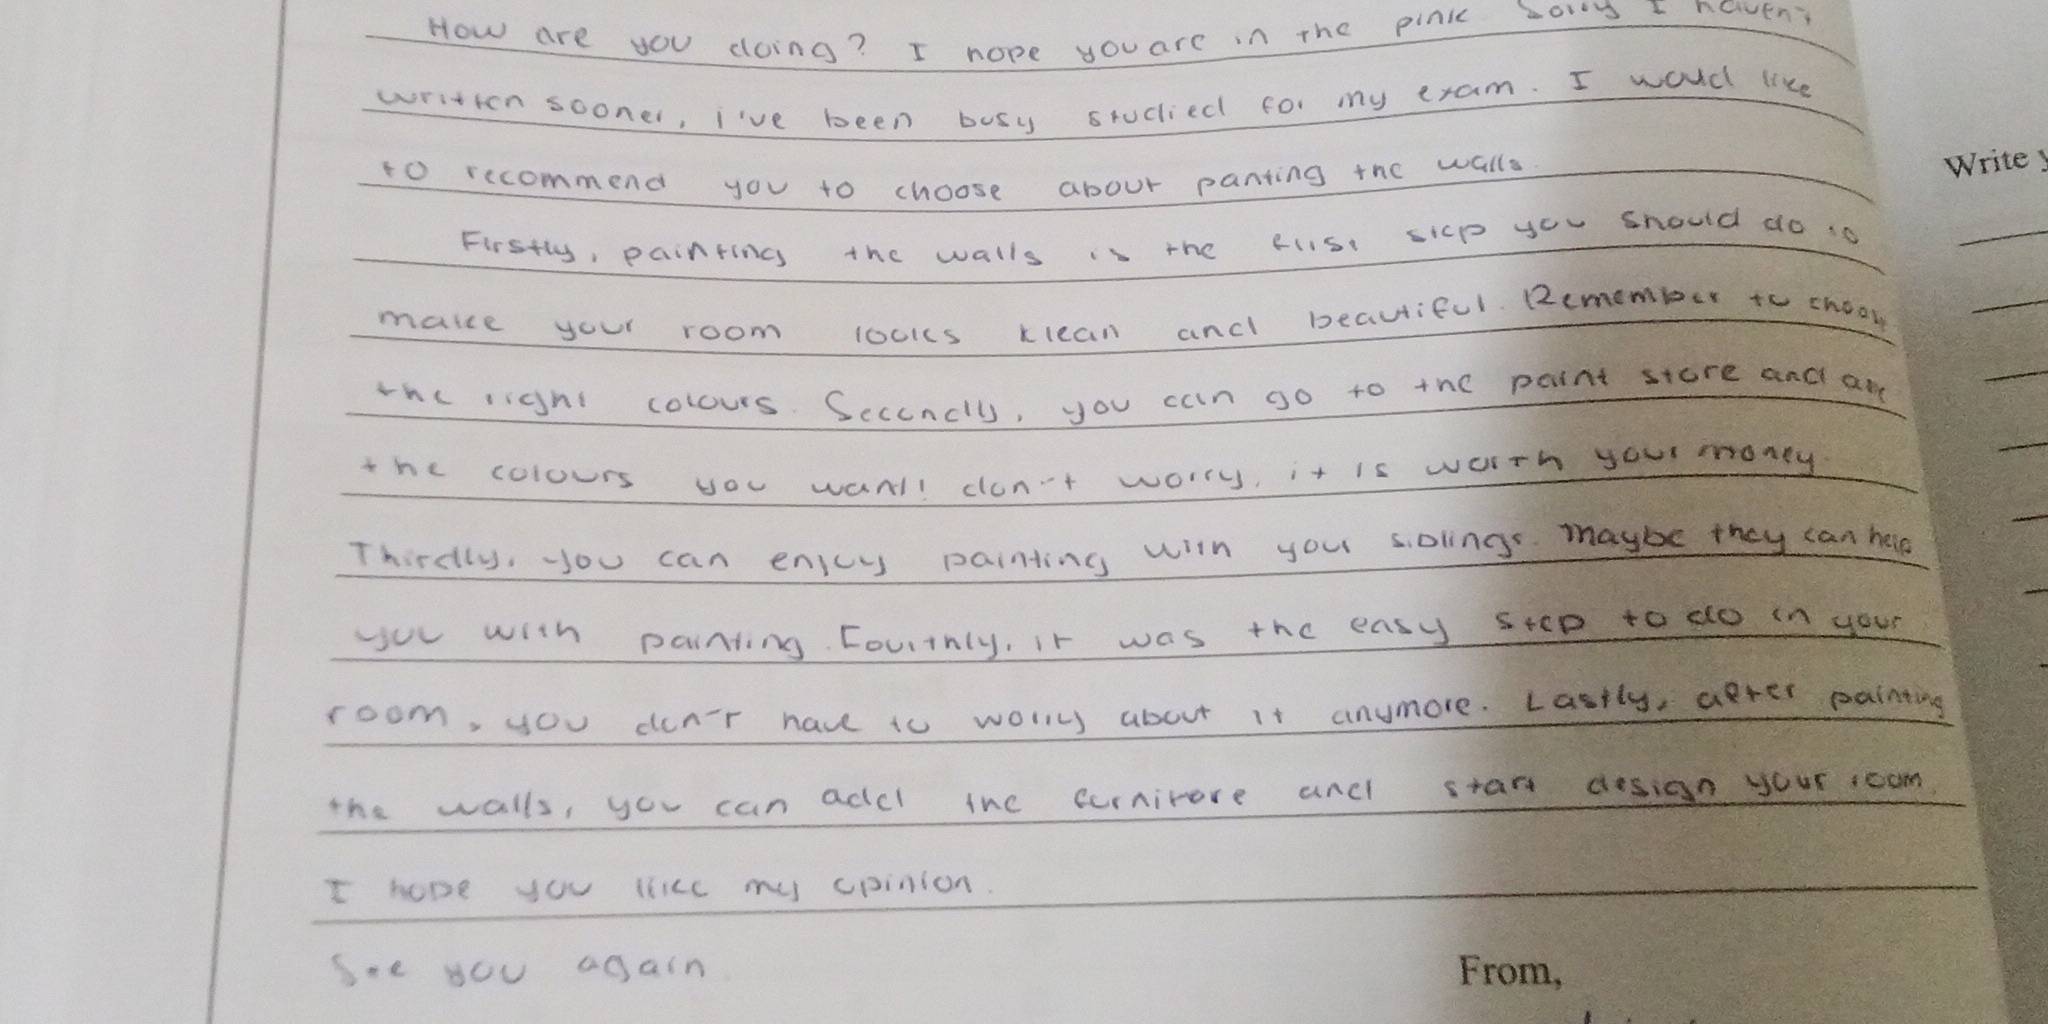 How are you doing? I hope you are in the pink. Sorry I haven't
written sooner, i've been busy studied for my exam. I would like
to recommend you to choose about panting the walls.
Write
Firstly, painting the walls is the first step you should do to
make your room looks klean and beautiful. Remember to choose
the right colours. Secondly, you can go to the paint store and
the colours you want! don't worry, it is worth your money.
Thirdly, you can enjoy painting with your siblings. Maybe they can help
you with painting. Fourthly, it was the easy step to do in your
room, you don't have to worry about it anymore. Lastly, after painting
the walls, you can add the furniture and start design your room.
I hope you like my opinion.
See you again.
From,